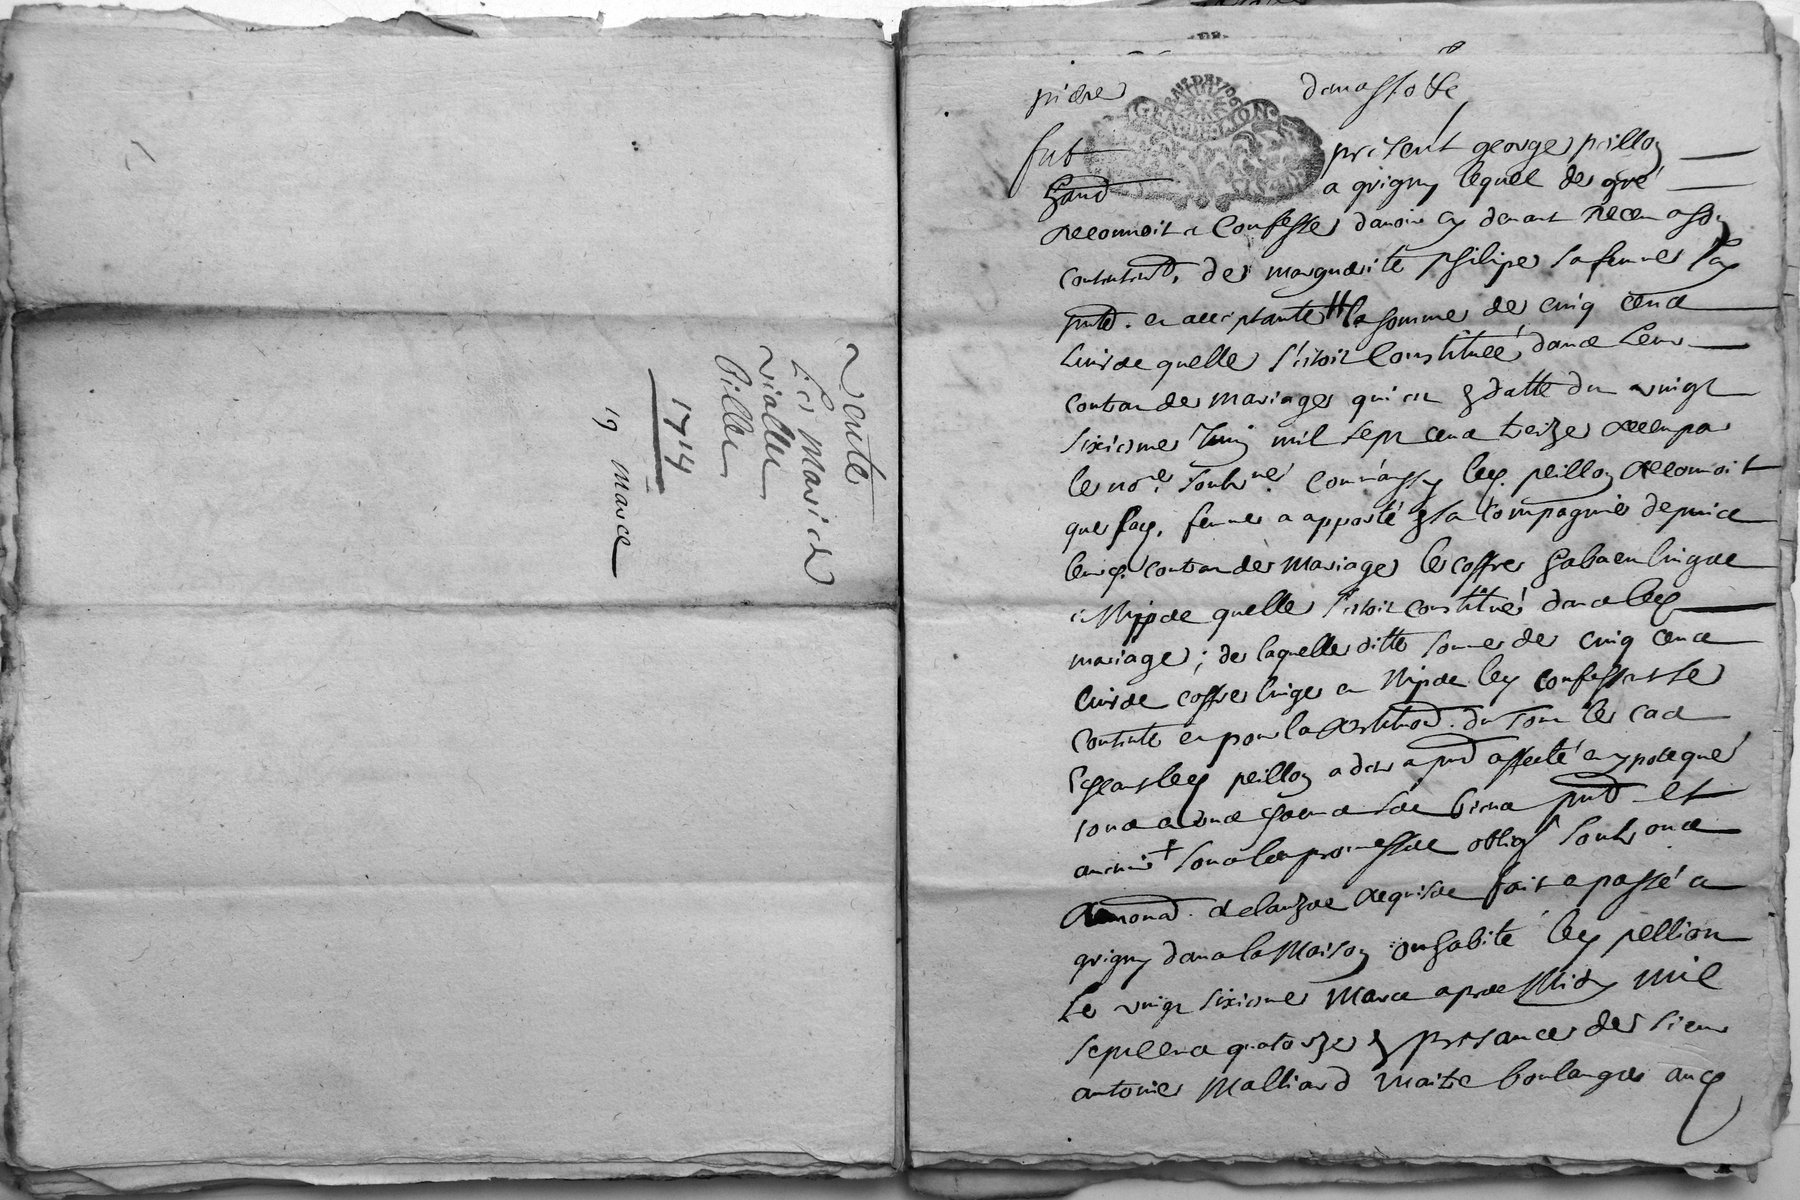 Vente
Les Mariés
Viallier
Pillier
1714
19 mars
GEN DE LION
fut present george peillon
a grigny lequel de gré
reconnoit et confesse d'avoir cy devant receu a son
contentemt. de marguerite philipe sa femme
pnte. et acceptante la somme de cinq cens
livres quelle s'estoit constituée dans leur
contrat de mariage qui est en datte du vingt
sixieme Juin mil sept cens treize receu par
le nore. soubsne. comm'aussy led. peillon reconnoit
que sad. femme a apporté en sa compagnie depuis
leurd. contrat de mariage le coffre habts linges
et Nippes quelle s'estoit constitué dans led.
mariage; de laquelle ditte somme de cinq cens
livres coffre linges et Nippes led. confessant se
contente et pour la restituon. du tout le cas
escheant led. peillon a des a pnt affecté et ypotequé
tous et uns chacuns ses biens pnts et
avenir sous les promesses oblig soubs
renons. et clauses requises fait et passé a
grigny dans la Maison ou habite led. pellion
le vingt sixieme Mars apres Midy mil
sept cens quatorze en presance de sieur
antoine Malliard maitre boulanger aud.